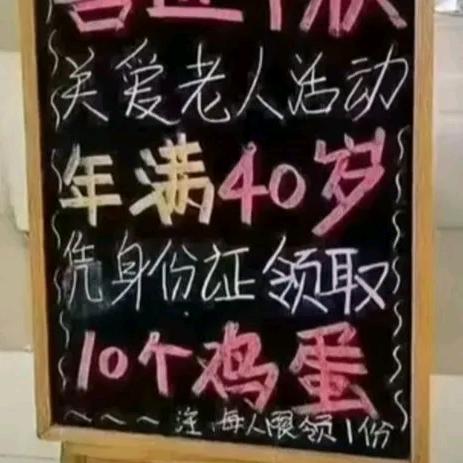 关爱老人活动
年满40岁
凭身份证领取
10个鸡蛋
注每人限领1份